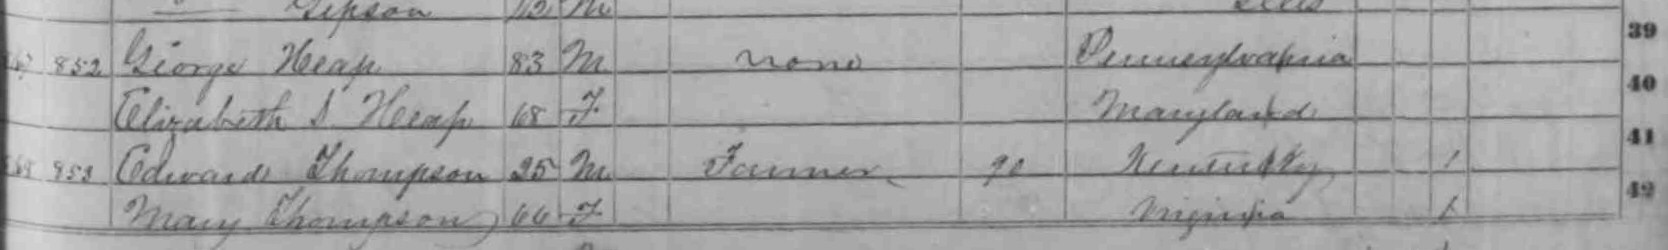 Gipson 12 M Ills
39
852 George Heap 83 M none Pennsylvania
40
Elizabeth S Heap 68 F Maryland
41
853 Edward Thompson 25 M Farmer 90 Kentucky 1
42
Mary Thompson 66 F Virginia 1